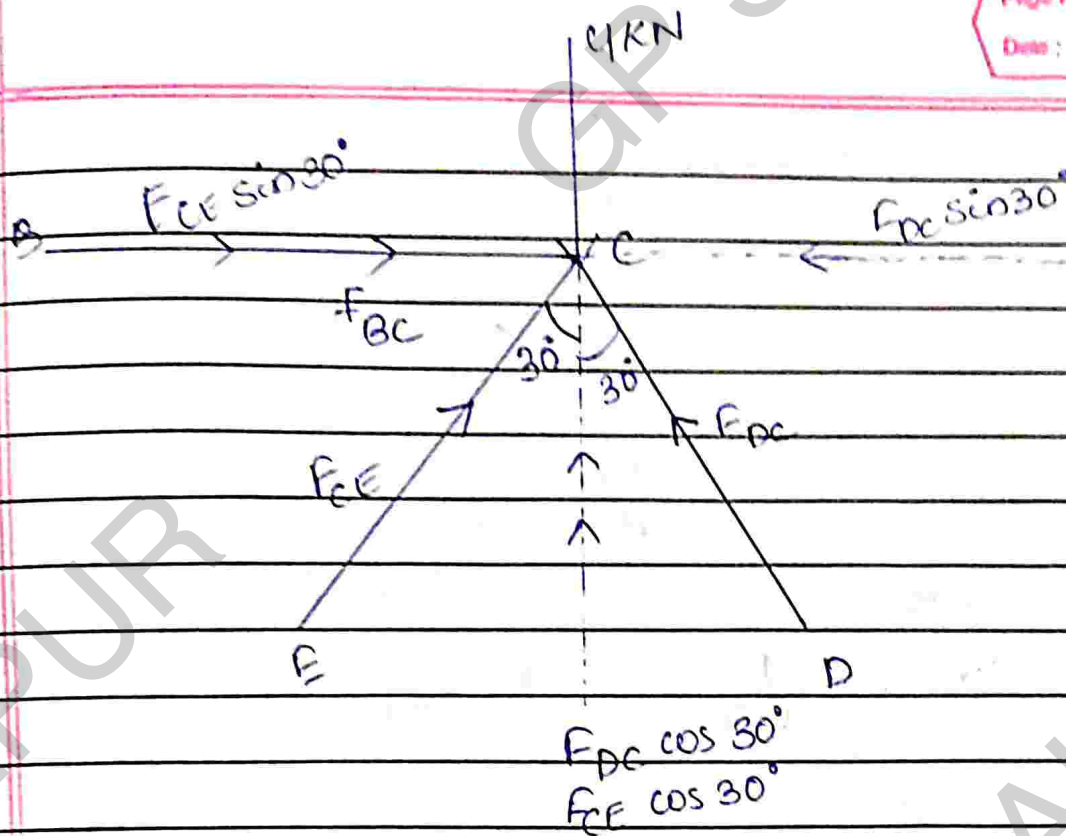 Date :
4KN
F_CE sin30°
F_DC sin30°
B
C
F_BC
30°
30°
F_DC
F_CE
E
D
F_DC cos 30°
F_CE cos 30°